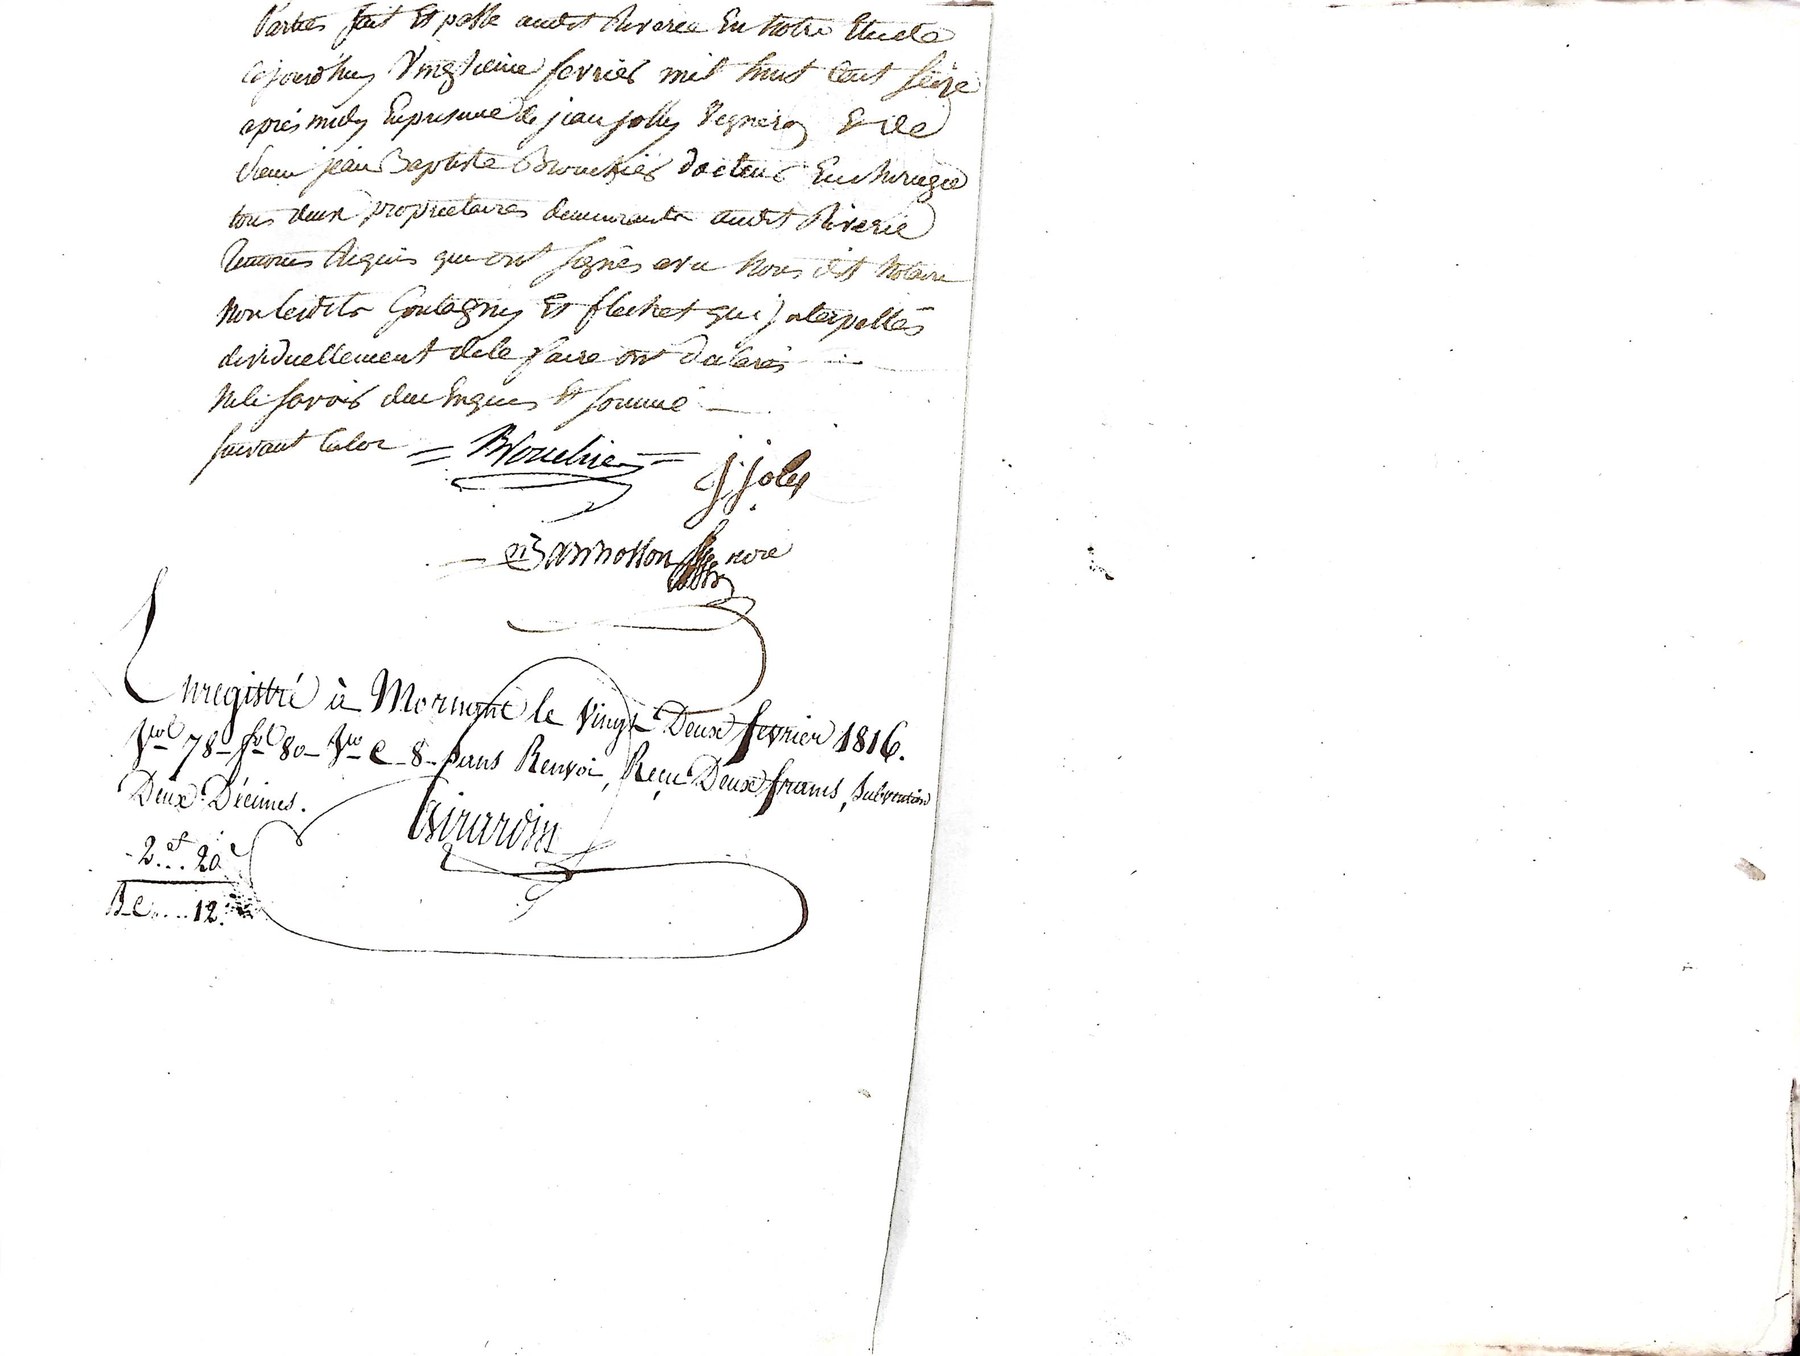 Parties fait Et passé audit Riverie En notre Etude
cejourd'huy vingtieme fevrier mil huit cent seize
après midy En presence de jean jolly vigneron Et de
sieur jean Baptiste Brouchier docteur En chirurgie
tous deux proprietaires demeurants audit Riverie
temoins Requis qui ont signés avec nous dit notaire
non lesdits Goutagny Et flechet qui jnterpellés
dividuellement de le faire ont declarés
ne le savoir duement Enquis Et sommé
suivant la loi = Brouchier =
j joly
nore
Enregistré à Mornant le vingt Deux fevrier 1816.
vol 78 fol 80 vo C 8 sans Renvoi, Reçu Deux francs, subvention
Deux Décimes.
Girardin
2 f 20
12